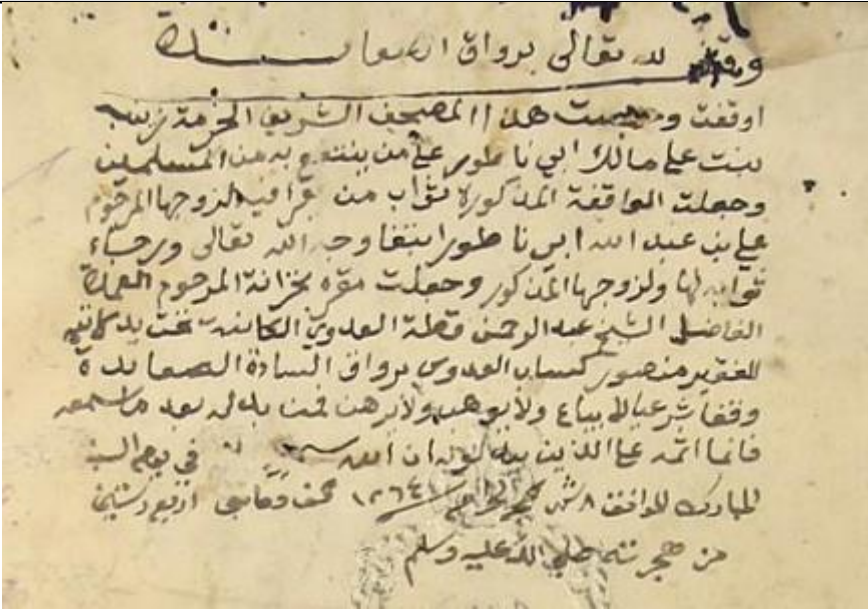 وقف لله تعالى برواق الصعايدة
اوقفت وحبست هذا المصحف الشريف الحرمة زينب
بنت علي مالك ابي ناطور علي من ينتفع به من المسلمين
وجعلت الواقفة المذكورة ثواب من قرا فيه لزوجها المرحوم
علي بن عبد الله ابي ناطور ابتغا وجه الله تعالى ورجاء
ثوابه لها ولزوجها المذكور وجعلت مقره بخزانة المرحوم العمدة
الفاضل الشيخ عبد الرحمن قطة العدوي الكاينة تحت يد كاتبه
الفقير منصور كساب العدوي برواق السادة الصعايدة
وقفا شرعيا لا يباع ولا يوهب ولا يرهن فمن بدله بعد ما سمعه
فانما اثمه على الذين يبدلونه ان الله سميع في يوم السبت
المبارك الموافق ٨ شهر الحرام ١٢٦٤ الف وماتين اربع وستين
من هجرته صلى الله عليه وسلم